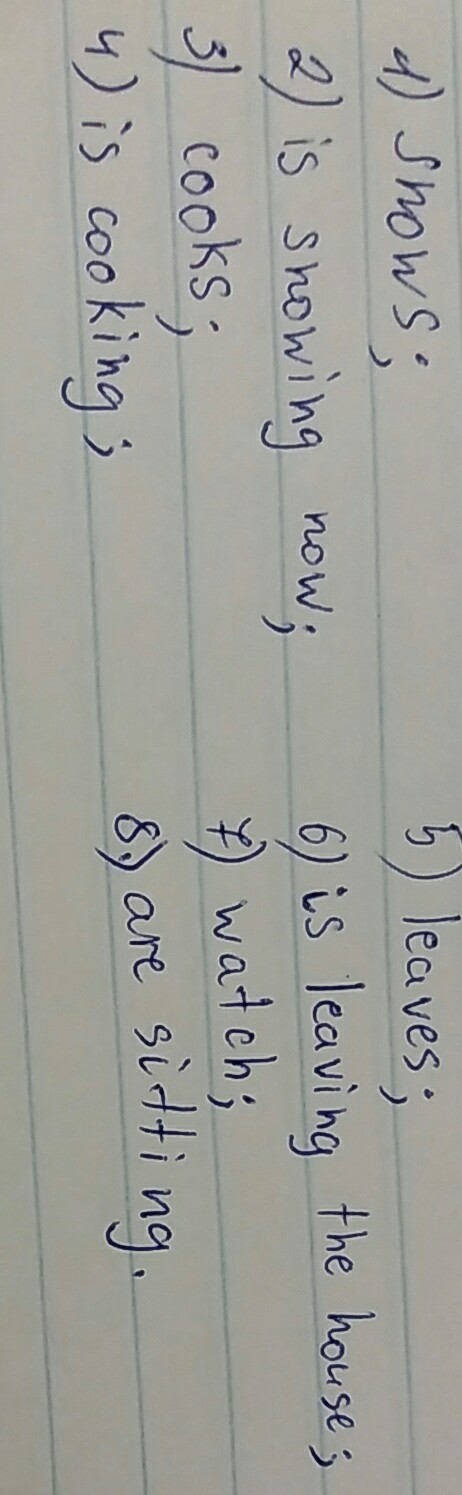 1) snows;
2) is snowing now;
3) cooks;
4) is cooking;
5) leaves;
6) is leaving the house;
7) watch;
8) are sitting.